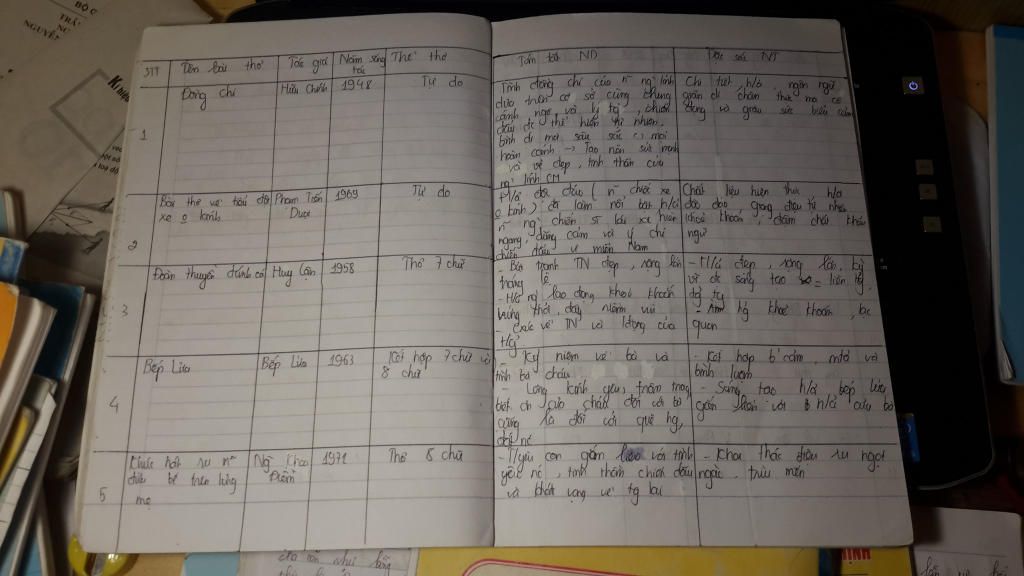 BỘ G
TRẦ
NGUYỄN
Kí hiệu
STT
Tên bài thơ
Tác giả
Năm sáng tác
Thể thơ
Tóm tắt ND
Đặc sắc NT
1
Đồng chí
Hữu Chính
1948
Tự do
Tình đồng chí của n~ ng' lính
dựa trên cơ sở cùng chung
cảnh ngộ và lý tg',
đấu đc thể hiện tự nhiên,
bình dị mà sâu sắc mọi
hoàn cảnh → Tạo nên sức mạnh
và vẻ đẹp, tinh thần của
ng' lính CM
Chi tiết, h/ả, ngôn ngữ
giản dị chân thực mà cô
đọng và giàu sức biểu cảm
2
Bài thơ về tiểu đội
xe o kính
Phạm Tiến
Duật
1969
Tự do
H/ả độc đáo ( n~ chiếc xe
o kính ) đã làm nổi bật h/ả
n~ ng' chiến sĩ lái xe hiên
ngang, dũng cảm và ý chí
chiến đấu vì miền Nam
Chất liệu hiện thực h/ả
độc đáo giọng điệu tự nhiên
khoẻ khoắn, đậm chất khẩu
ngữ
3
Đoàn thuyền đánh cá
Huy Cận
1958
Thơ 7 chữ
- Bức tranh TN đẹp, rộng lớn
tráng lệ
- H/ả ng' lao động khoẻ khoắn
hứng thở, đầy niềm vui
- Cxúc về TN và lđộng của
- H/ả đẹp, rộng lớn, kỳ
vĩ đc sáng tạo = liên tg',
tg tg
- hg khoẻ khoắn, lạc
quan
4
Bếp Lửa
Bếp Lửa
1963
Kết hợp 7 chữ và
8 chữ
- Kỷ niệm về bà và
tình bà cháu
- Lòng kính yêu, trân trọng
biết ơn của cháu đối với bà
cũng là đối với quê hg,
đất nc
- Kết hợp b' cảm, mtả và
bình luận
- Sáng tạo h/ả bếp lửa
gắn liền với h/ả của bà
5
Khúc hát ru n~
đứa bé trên lưng
mẹ
Ng~ Khoa
Điềm
1971
Thơ 8 chữ
- T/yêu con gắn liền với tình
yêu nc, tinh thần chiến đấu
và khát vọng về tg lai
- Khai thác điệu ru ngọt
ngào, trìu mến